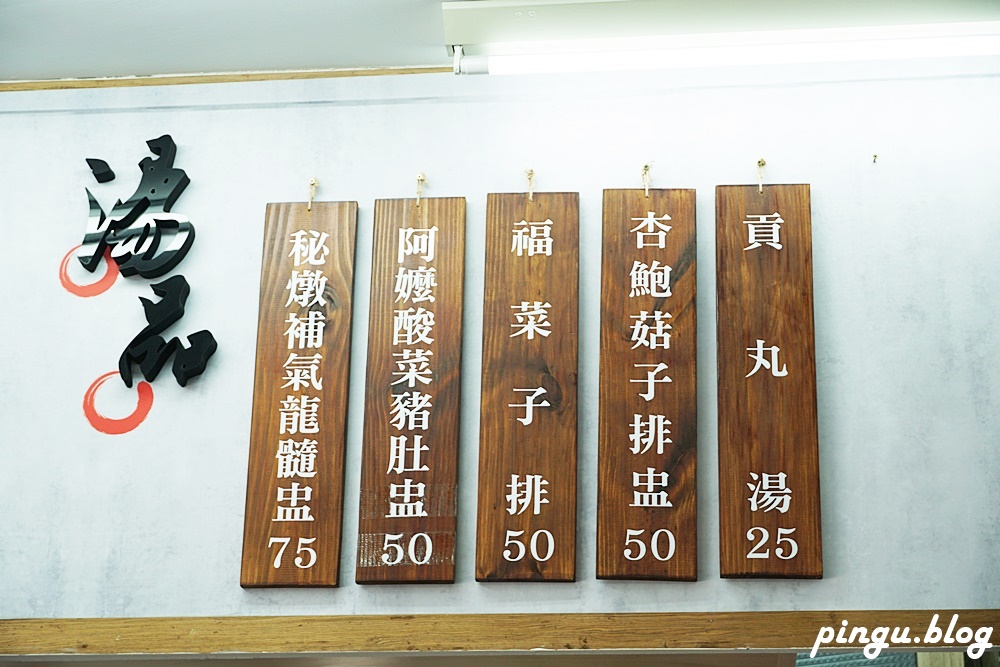 湯品
貢丸湯
25
杏鮑菇子排盅
50
福菜子排
50
阿嬤酸菜豬肚盅
50
秘燉補氣龍髓盅
75
pingu.blog